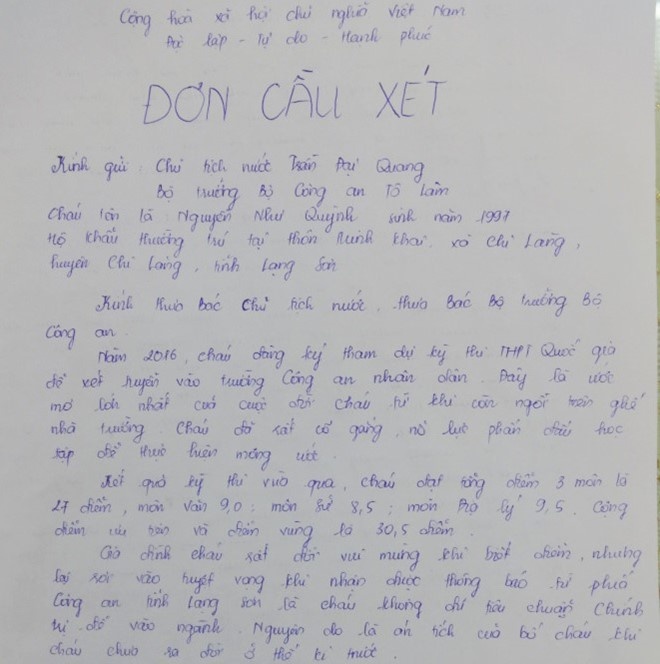 Cộng hoà xã hội chủ nghĩa Việt Nam
Độc lập - Tự do - Hạnh phúc
ĐƠN CẦU XÉT
Kính gửi : Chủ tịch nước Trần Đại Quang
Bộ trưởng Bộ Công an Tô Lâm
Cháu tên là Nguyễn Như Quỳnh sinh năm 1997
Hộ khẩu thường trú tại thôn Minh Khai, xã Chi Lăng,
huyện Chi Lăng, tỉnh Lạng Sơn
Kính thưa Bác Chủ tịch nước, thưa Bác Bộ trưởng Bộ
Công an.
Năm 2016, cháu đăng ký tham dự kỳ thi THPT Quốc gia
để xét tuyển vào trường Công an nhân dân. Đây là ước
mơ lớn nhất của cuộc đời cháu từ khi còn ngồi trên ghế
nhà trường. Cháu đã rất cố gắng, nỗ lực phấn đấu học
tập để thực hiện mong ước.
Kết quả kỳ thi vừa qua, cháu đạt tổng điểm 3 môn là
27 điểm, môn văn 9,0 ; môn Sử 8,5 ; môn Địa lý 9,5. Cộng
điểm ưu tiên và điểm vùng là 30,5 điểm.
Gia đình cháu rất đỗi vui mừng khi biết điểm, nhưng
lại rơi vào tuyệt vọng khi nhận được thông báo từ phía
Công an tỉnh Lạng Sơn là cháu không đủ tiêu chuẩn Chính
trị để vào ngành. Nguyên do là án tích của bố cháu khi
cháu chưa ra đời ở thế kỉ trước.